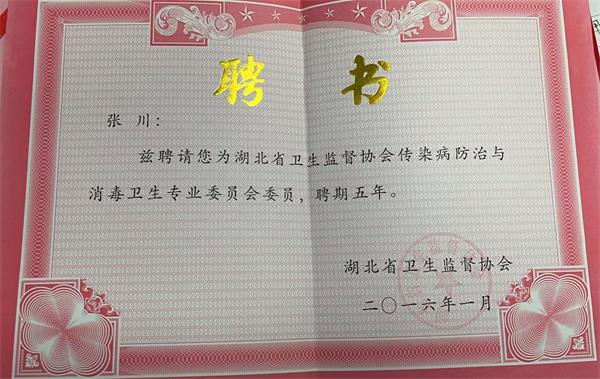 聘书
张川：
兹聘请您为湖北省卫生监督协会传染病防治与
消毒卫生专业委员会委员，聘期五年。
湖北省卫生监督协会
二〇一六年一月